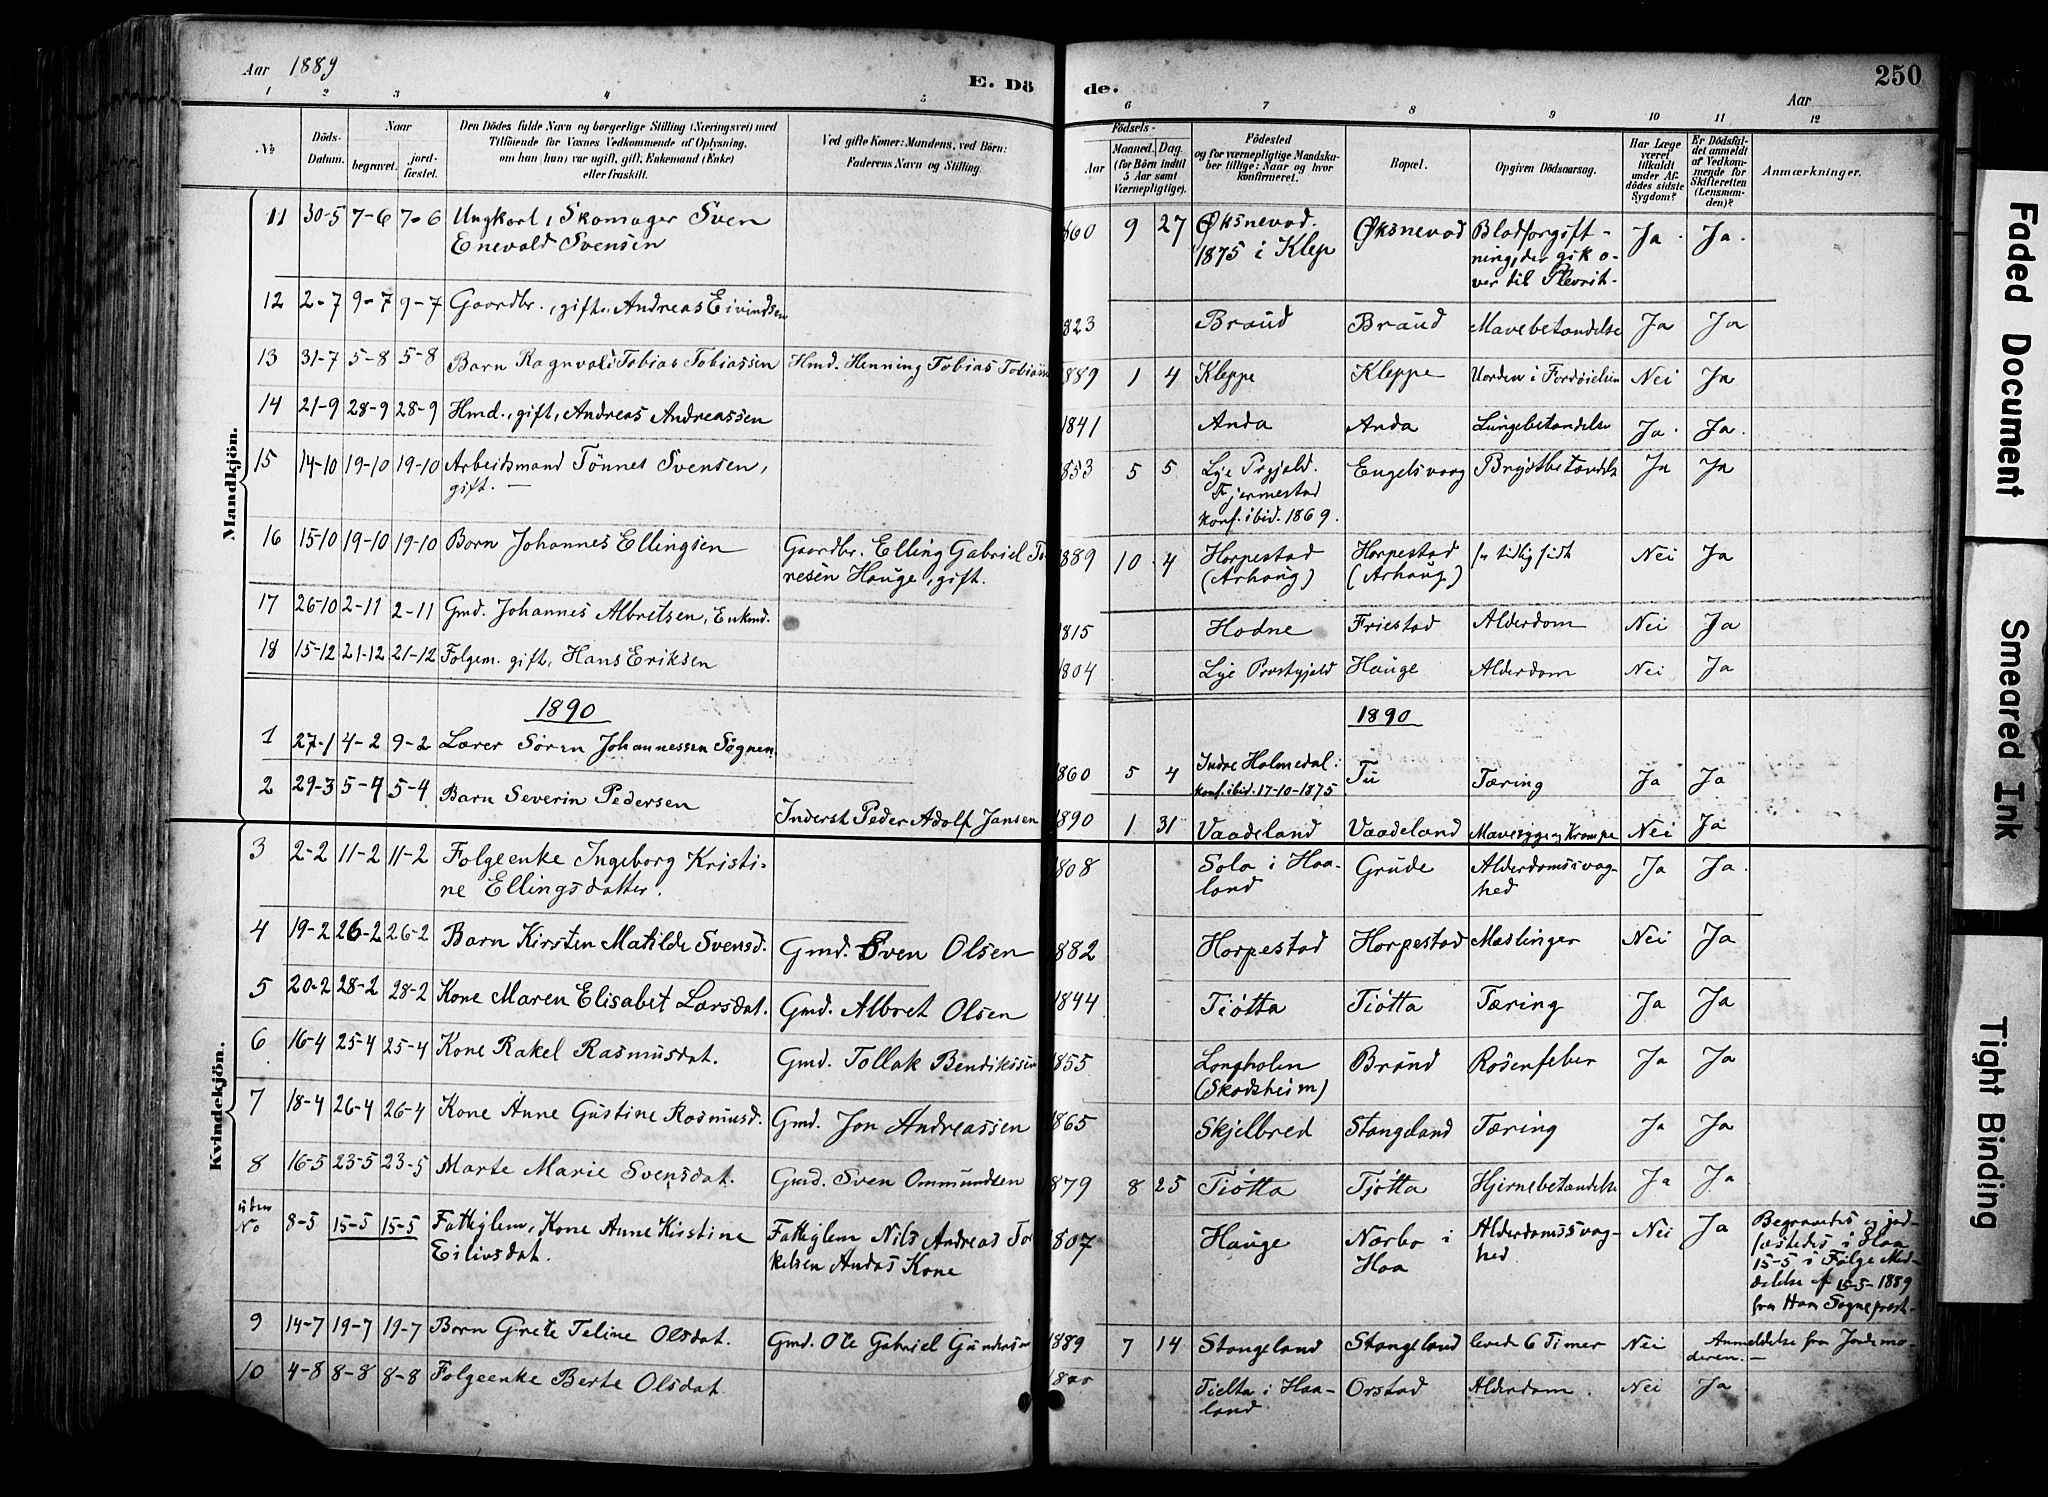 Aar 1889
E. Dö
de.
Aar
250
1 2 3 4 5 6 7 8 9 10 11 12
No
Döds-Datum.
Naar
begravet.
jord-fæstet.
Den Dödes fulde Navn og borgerlige Stilling (Næringsvei) med
Tilföiende for Voxnes Vedkommende af Oplysning,
om han (hun) var ugift, gift, Enkemand (Enke)
eller fraskilt.
Ved gifte Koner: Mandens, ved Börn:
Faderens Navn og Stilling.
Födsels-
Aar
Maaned. Dag.
(for Börn indtil
5 Aar samt
Værnepligtige).
Födested
og for værnepligtige Mandska-
ber tillige: Naar og hvor
konfirmeret.
Bopæl.
Opgiven Dödsaarsag.
Har Læge
været
tilkaldt
under Af-
dödes sidste
Sygdom?
Er Dödsfal-
det anmeldt
af Vedkom-
mende for
Skifteretten
(Lensman-
den)?
Anmærkninger.
Mandkjön.
11 30-5 7-6 7-6 Ungkarl, Skomager Sven
Enevald Svensen
860 9 27 Øksnevad.
1875 i Klep
Øksnevad
Blodforgift-
ning, der gik o-
ver til Plevrit-
Ja. Ja.
12 2-7 9-7 9-7 Gaardbr., gift, Andreas Eivindsen
823 Braud Braud Mavebetændelse Ja Ja
13 31-7 5-8 5-8 Barn Ragnvald Tobias Tobiassen Hmd. Henning Tobias Tobiass
889 1 4 Kleppe Kleppe Uorden i Fordøielsen Nei Ja
14 21-9 28-9 28-9 Hmd., gift, Andreas Andreassen
1841 Anda Anda Lungebetændelse Ja. Ja.
15 14-10 19-10 19-10 Arbeidsmand Tønnes Svensen,
gift. —
1853 5 5 Lye Prgjeld.
Tjermestad
konf. ibid. 1869.
Engelsvaag Brystbetændelse Ja Ja
16 15-10 19-10 19-10 Barn Johannes Ellingsen Gaardbr. Elling Gabriel Tø
nesen Hauge, gift.
1889 10 4 Horpestad
(Arhaug)
Horpestad
(Arhaug)
for tidlig født Nei Ja
17 26-10 2-11 2-11 Gmd. Johannes Albretsen, Enkmd.
1815 Hodne Friestad Alderdom Nei Ja
18 15-12 21-12 21-12 Folgem. gift, Hans Eriksen
1804 Lye Prestgjeld Hauge Alderdom Nei Ja
1890
1890
1 27-1 4-2 9-2 Lærer Søren Johannessen Sognen
1860 5 4 Indre Holmedal:
konf. ibid. 17-10-1875
Tu Tæring Ja Ja
2 29-3 5-4 5-4 Barn Severin Pedersen Inderst Peder Adolf Jansen
1890 1 31 Vaadeland Vaadeland Mavesyge og Krampe Nei Ja
Kvindekjön.
3 2-2 11-2 11-2 Folgeenke Ingeborg Kristi-
ne Ellingsdatter.
808 Sola i Haa-
land
Grude Alderdomssvag-
hed
Ja Ja.
4 19-2 26-2 26-2 Barn Kirsten Matilde Svensd. Gmd. Sven Olsen
882 Horpestad Horpestad Mæslinger Nei Ja
5 20-2 28-2 28-2 Kone Maren Elisabet Larsdat. Gmd. Albret Olsen
1844 Tiøtta Tiøtta Tæring Ja Ja
6 16-4 25-4 25-4 Kone Rakel Rasmusdat. Gmd. Tollak Bendikssen
1855 Longholen
(Skadsheim)
Braud Rosenfeber Ja Ja
7 18-4 26-4 26-4 Kone Anne Gustine Rasmusd. Gmd. Jon Andreassen
1865 Skjelbred Stangeland Tæring Ja Ja
8 16-5 23-5 23-5 Marte Marie Svensdat. Gmd. Sven Ommundsen
1879 8 25 Tiøtta Tjøtta Hjernebetændelse Ja Ja
uden
No 8-5 15-5 15-5 Fattiglem, Kone Anne Kirstine
Eilivsdat.
Fattiglem Nils Andreas Tor
kelsen Andas Kone
1807 Hauge Nærbo i
Haa
Alderdomssvag-
hed
Nei Ja
Begravedes og jord-
fæstedes i Haa
15-5 i Følge Med-
delelse af 15-5-1889
fra Haa Sogneprest-
9 14-7 19-7 19-7 Barn Grete Teline Olsdat. Gmd. Ole Gabriel Gundersen
1889 7 14 Stangeland Stangeland levede 6 Timer Nei Anmeldelse fra Jordemo-
deren. —
10 4-8 8-8 8-8 Folgeenke Berte Olsdat.
Tjelta i Haa-
land
Orstad Alderdom. Nei Ja
Faded Document
Smeared Ink
Tight Binding